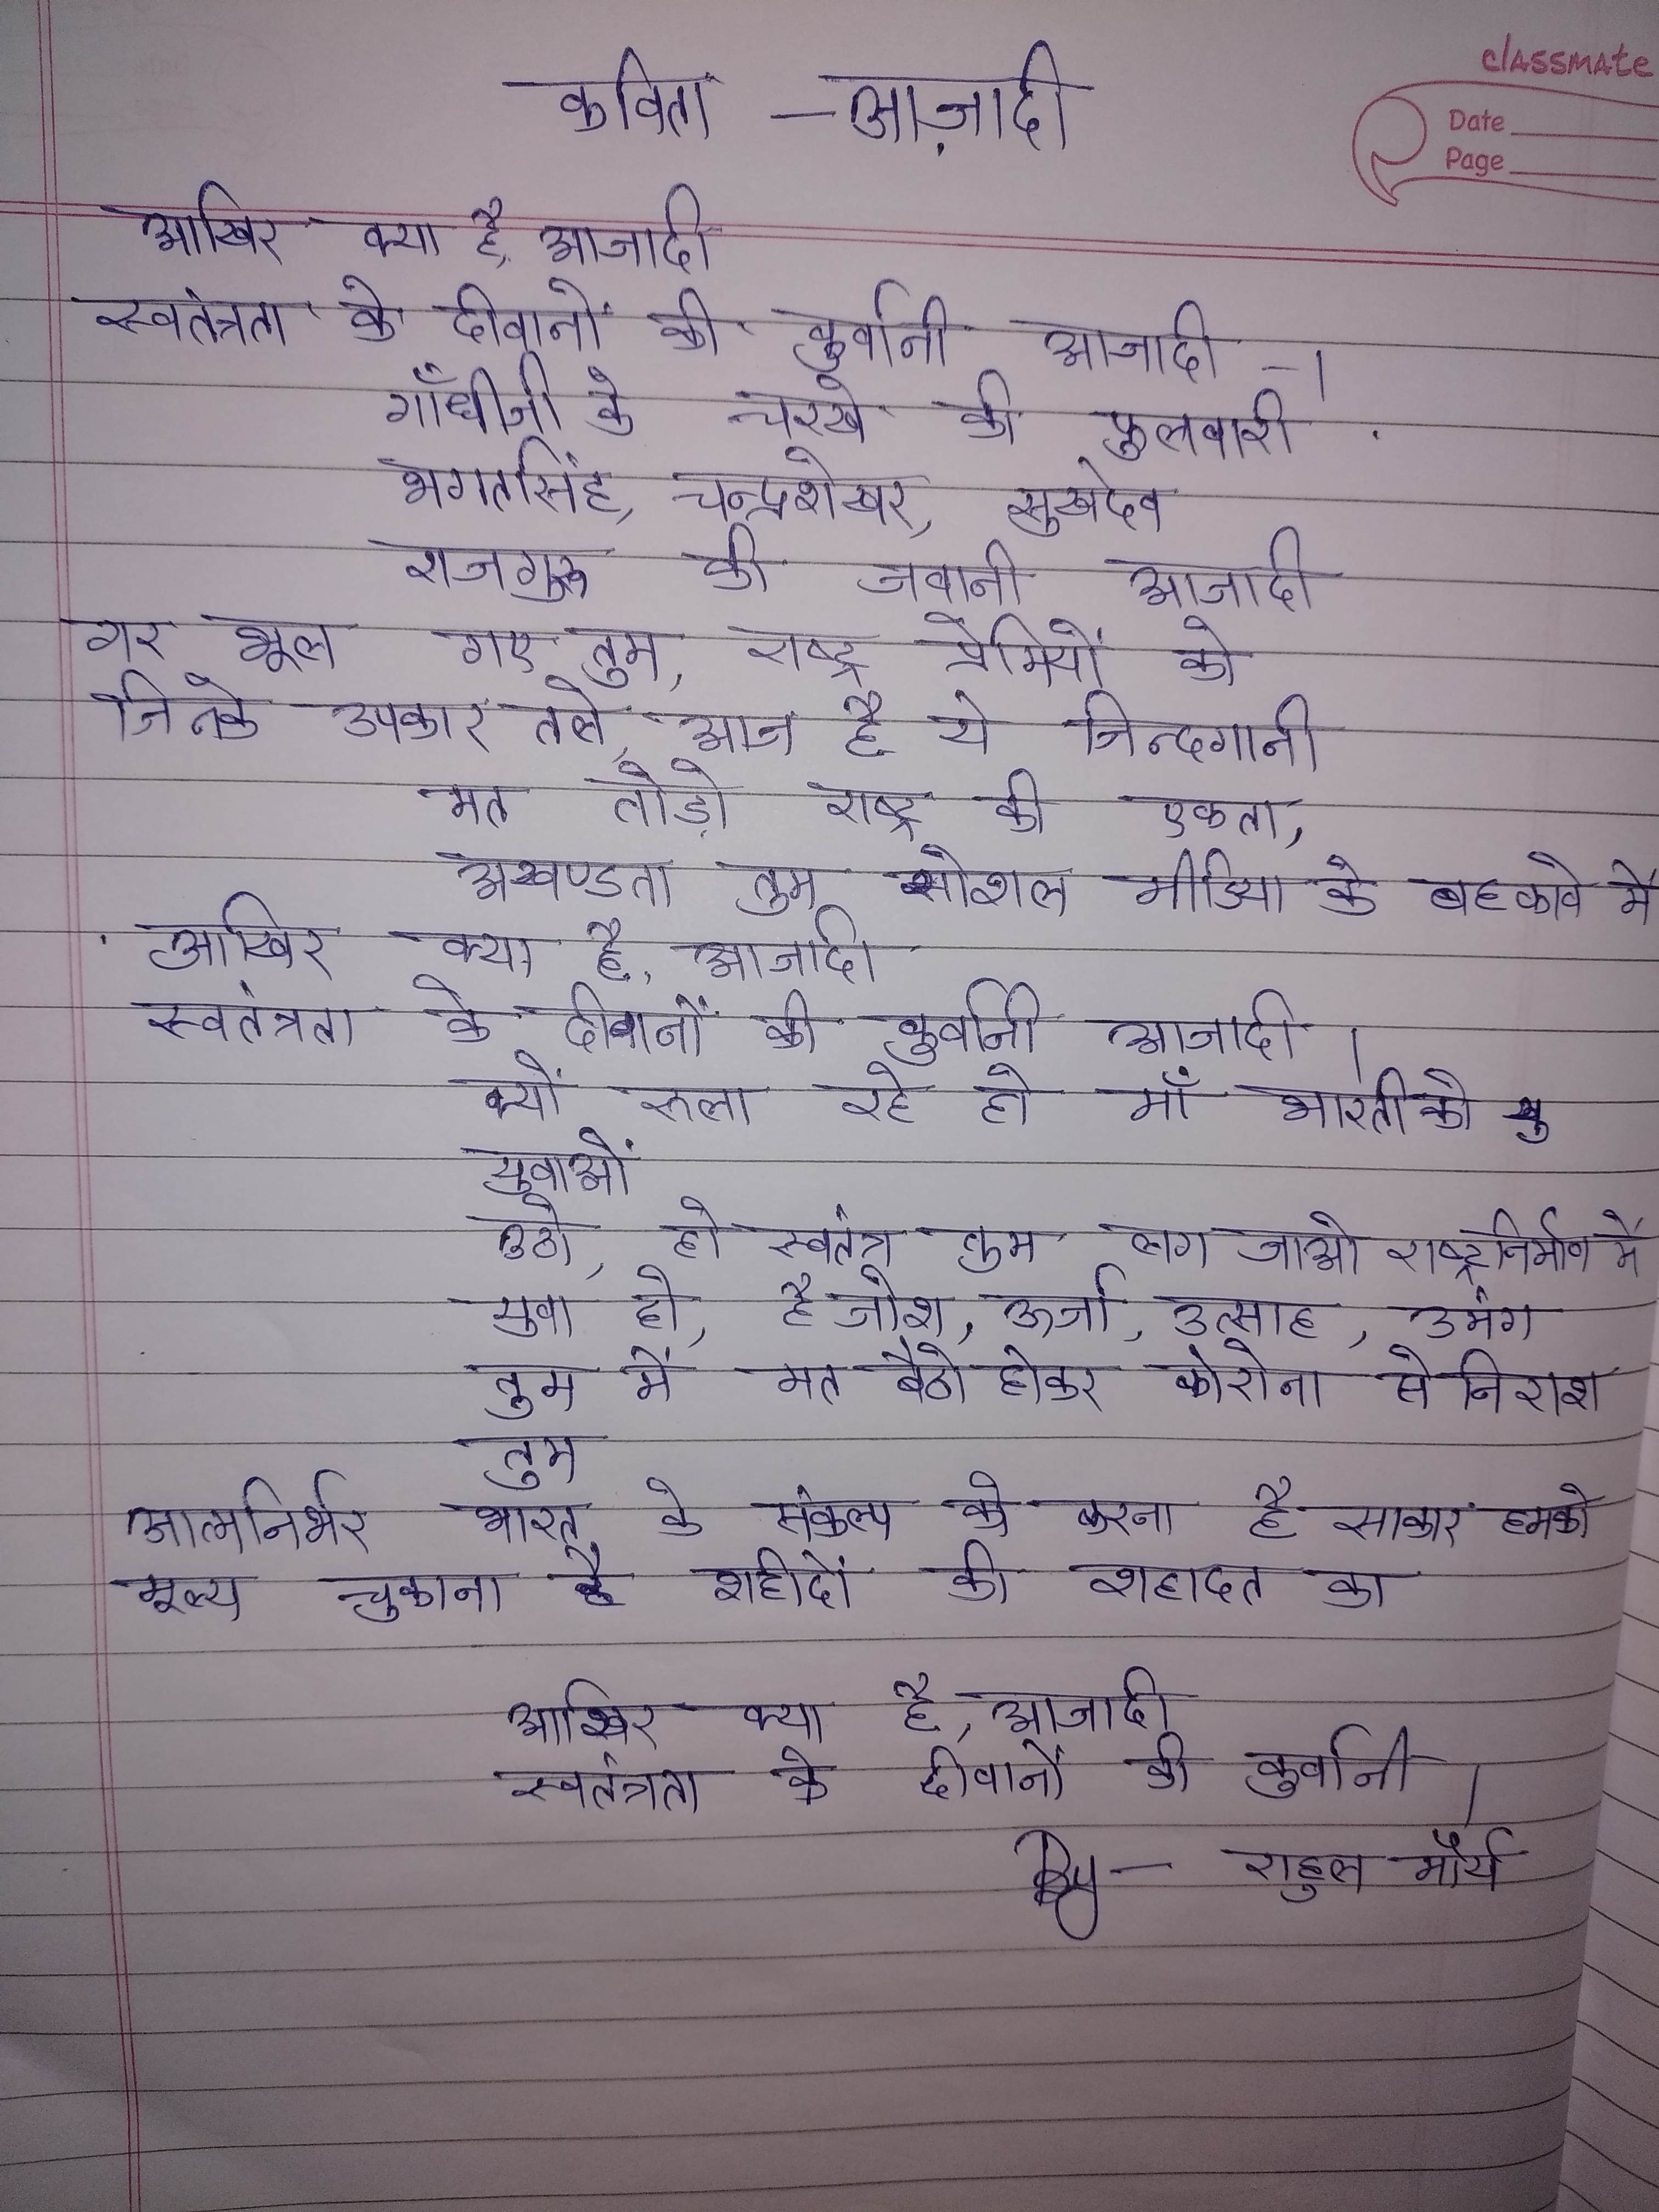 classmate
Date
Page
कविता - आज़ादी
आखिर क्या है, आजादी
स्वतंत्रता के दीवानों की कुर्वानी आजादी -।
गाँधीजी के चरखे की फुलवारी
भगतसिंह, चन्द्रशेखर, सुखदेव
राजगुरू की जवानी आजादी
गर भूल गए तुम, राष्ट्र प्रेमियों को
जिनके उपकार तले, आज है ये जिन्दगानी
मत तोड़ो राष्ट्र की एकता,
अखण्डता तुम सोशल मीडिया के बहकावे में
आखिर क्या है, आजादी
स्वतंत्रता के दीवानों की कुर्वानी आजादी ।
क्यों रूला रहे हो माँ भारती को
युवाओं
उठो, हो स्वतंत्र तुम लग जाओ राष्ट्रनिर्माण में
युवा हो, है जोश, ऊर्जा, उत्साह, उमंग
तुम में मत बैठो होकर कोरोना से निराश
तुम
आत्मनिर्भर भारत के संकल्प को करना है साकार हमको
मूल्य चुकाना है शहीदों की शहादत का
आखिर क्या है, आजादी
स्वतंत्रता के दीवानों की कुर्वानी ।
By - राहुल मौर्य